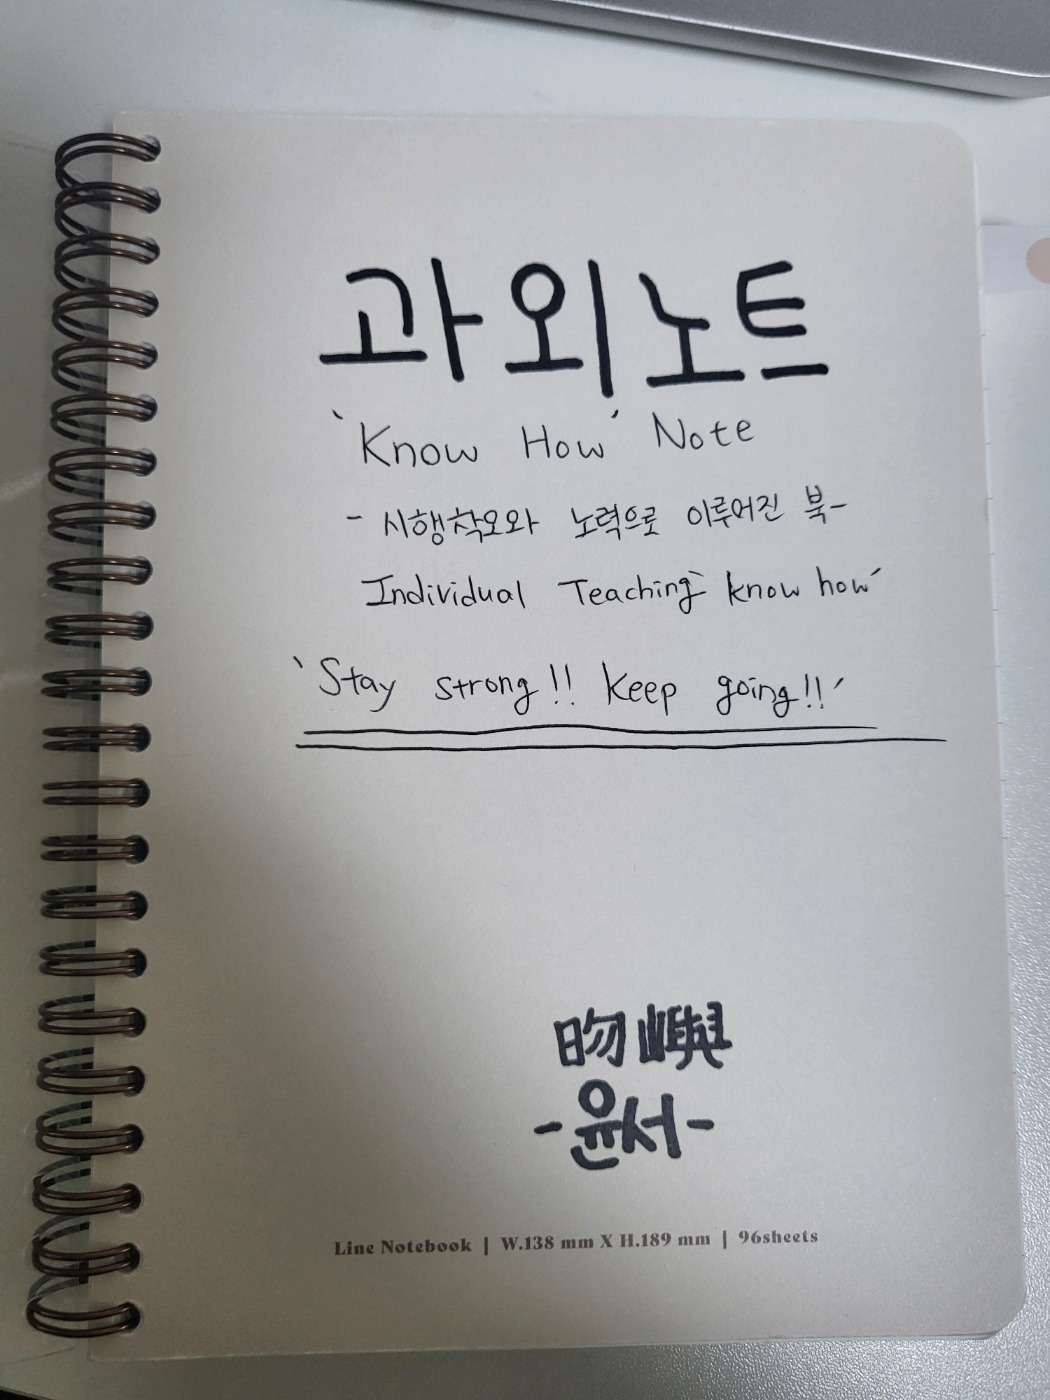 과외노트
`Know How´ Note
- 시행착오와 노력으로 이루어진 북-
Individual Teaching` know how´
`Stay strong!! keep going!!´
昒嶼
-윤서-
Line Notebook | W.138 mm X H.189 mm | 96sheets